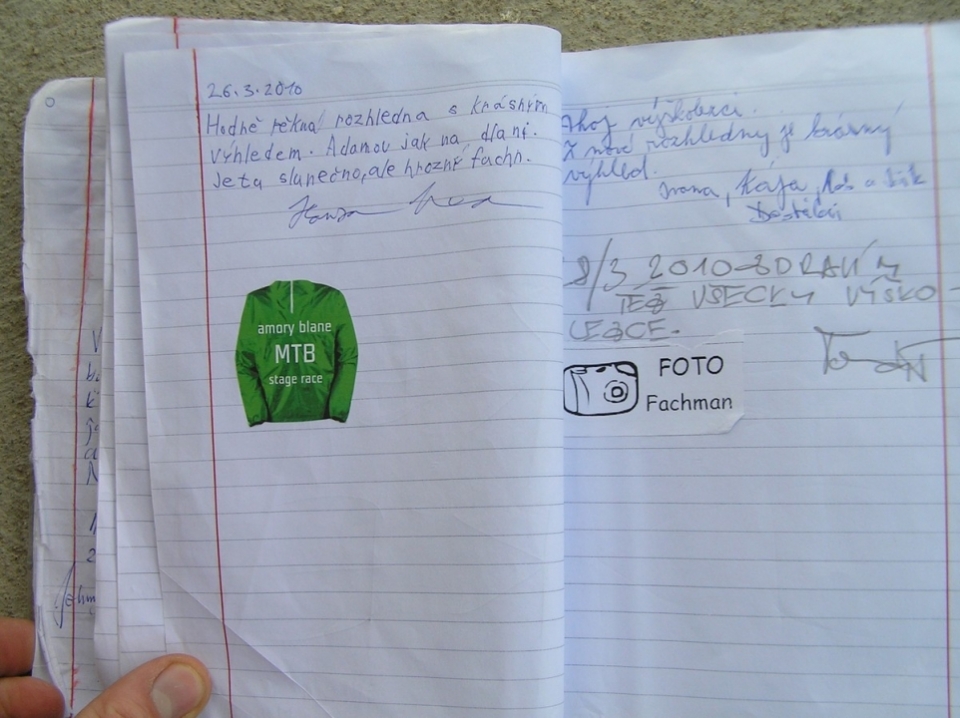 26.3.2010
Hodně pěkná rozhledna s krásným
výhledem. Adamov jak na dlani.
Je tu slunečno, ale hrozně fachn.
amory blane
MTB
stage race
Ahoj výškolezci.
Z nové rozhledny je krásný
výhled.
Ivana, Kája,
8/3 2010 - ZDRAVÍM
TEŽ VSECKY VÝSKO-
LEZCE.
FOTO
Fachman